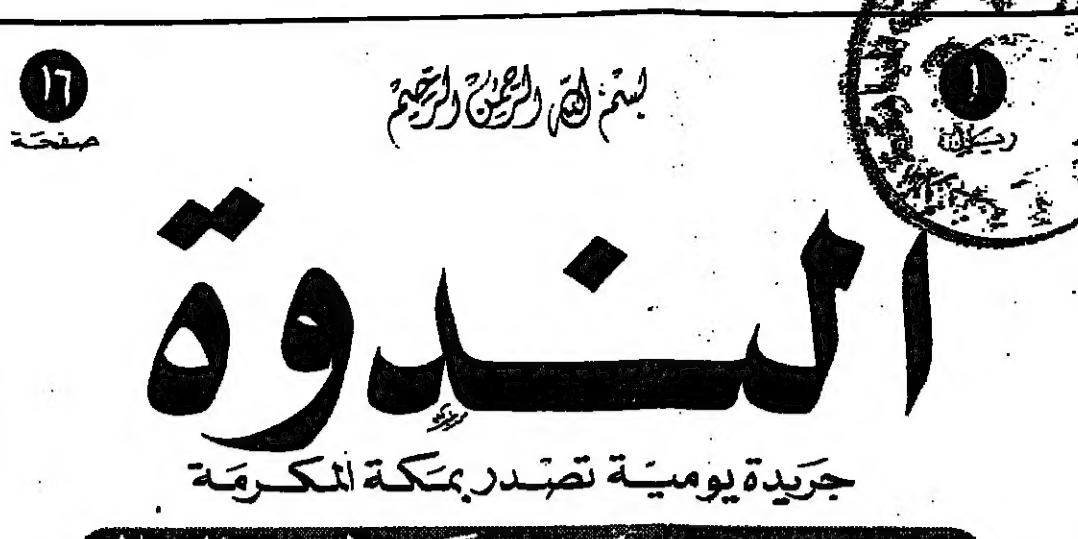 ١
ريال
بسم الله الرحمن الرحيم
١٦
صفحة
الندوة
جريدة يومية تصدر بمكة المكرمة